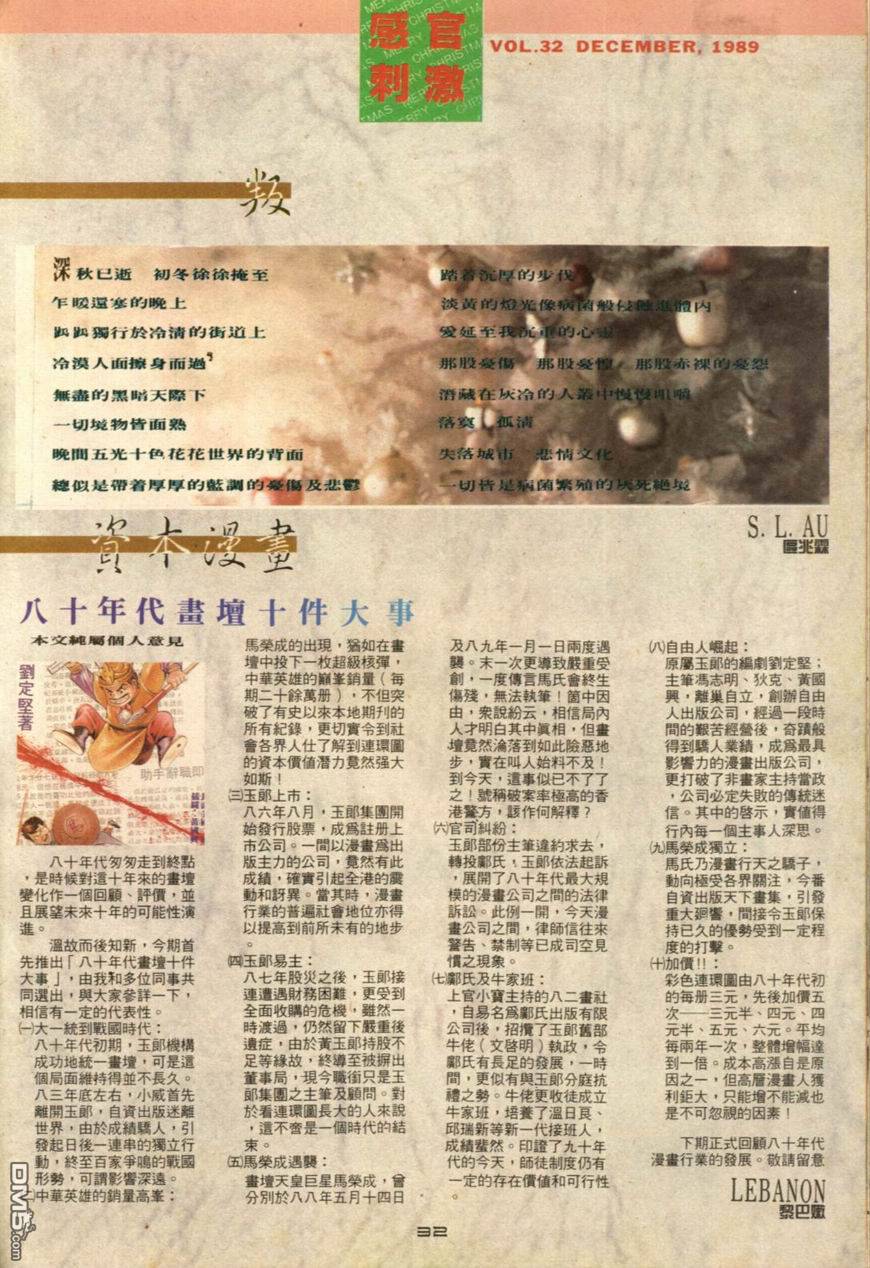 感官
刺激
VOL.32 DECEMBER, 1989
叛
深秋已逝　初冬徐徐掩至
乍暖還寒的晚上
踽踽獨行於冷清的街道上
冷漠人面擦身而過
無盡的黑暗天際下
一切境物皆面熟
晚間五光十色花花世界的背面
總似是帶着厚厚的藍調的憂傷及悲鬱
踏着沉厚的步伐
淡黃的燈光像病菌般侵蝕進體內
蔓延至我沉重的心靈
那股憂傷　那股憂惶　那股赤裸的憂怨
潛藏在灰冷的人叢中慢慢咀嚼
落寞　孤清
失落城市　悲情文化
一切皆是病菌繁殖的灰死絕境
S. L. AU
區兆霖
資本漫畫
八十年代畫壇十件大事
本文純屬個人意見
劉定堅著
助手辭職即
八十年代匆匆走到終點
，是時候對這十年來的畫壇
變化作一個回顧、評價，並
且展望未來十年的可能性演
進。
溫故而後知新，今期首
先推出「八十年代畫壇十件
大事」，由我和多位同事共
同選出，與大家參詳一下，
相信有一定的代表性。
㈠大一統到戰國時代：
八十年代初期，玉郎機構
成功地統一畫壇，可是這
個局面維持得並不長久。
八三年底左右，小威首先
離開玉郎，自資出版迷離
世界，由於成績驕人，引
發起日後一連串的獨立行
動，終至百家爭鳴的戰國
形勢，可謂影響深遠。
㈡中華英雄的銷量高峯：
馬榮成的出現，猶如在畫
壇中投下一枚超級核彈，
中華英雄的巔峯銷量（每
期二十餘萬册），不但突
破了有史以來本地期刊的
所有紀錄，更切實令到社
會各界人仕了解到連環圖
的資本價值潛力竟然强大
如斯！
㈢玉郎上市：
八六年八月，玉郎集團開
始發行股票，成爲註册上
市公司。一間以漫畫爲出
版主力的公司，竟然有此
成績，確實引起全港的震
動和訝異。當其時，漫畫
行業的普遍社會地位亦得
以提高到前所未有的地步
。
㈣玉郎易主：
八七年股災之後，玉郎接
連遭遇財務困難，更受到
全面收購的危機，雖然一
時渡過，仍然留下嚴重後
遺症，由於黃玉郎持股不
足等緣故，終導至被摒出
董事局，現今職銜只是玉
郎集團之主筆及顧問。對
於看連環圖長大的人來說
，這不啻是一個時代的結
束。
㈤馬榮成遇襲：
畫壇天皇巨星馬榮成，曾
分別於八八年五月十四日
及八九年一月一日兩度遇
襲。末一次更導致嚴重受
創，一度傳言馬氏會終生
傷殘，無法執筆！箇中因
由，衆說紛云，相信局內
人才明白其中眞相，但畫
壇竟然淪落到如此險惡地
步，實在叫人始料不及！
到今天，這事似已不了了
之！號稱破案率極高的香
港警方，該作何解釋？
㈥官司糾紛：
玉郎部份主筆違約求去，
轉投鄺氏，玉郎依法起訴
，展開了八十年代最大規
模的漫畫公司之間的法律
訴訟。此例一開，今天漫
畫公司之間，律師信往來
警告、禁制等已成司空見
慣之現象。
㈦鄺氏及牛家班：
上官小寶主持的八二畫社
，自易名爲鄺氏出版有限
公司後，招攬了玉郎舊部
牛佬（文啓明）執政，令
鄺氏有長足的發展，一時
間，更似有與玉郎分庭抗
禮之勢。牛佬更收徒成立
牛家班，培養了溫日良、
邱瑞新等新一代接班人，
成績蜚然。印證了九十年
代的今天，師徒制度仍有
一定的存在價值和可行性
。
㈧自由人崛起：
原屬玉郎的編劇劉定堅；
主筆馮志明、狄克、黃國
興，離巢自立，創辦自由
人出版公司，經過一段時
間的艱苦經營後，奇蹟般
得到驕人業績，成爲最具
影響力的漫畫出版公司，
更打破了非畫家主持當政
，公司必定失敗的傳統迷
信。其中的啓示，實值得
行內每一個主事人深思。
㈨馬榮成獨立：
馬氏乃漫畫行天之驕子，
動向極受各界關注，今番
自資出版天下畫集，引發
重大廻響，間接令玉郎保
持已久的優勢受到一定程
度的打擊。
㈩加價!!：
彩色連環圖由八十年代初
的每册三元，先後加價五
次──三元半、四元、四
元半、五元、六元。平均
每兩年一次，整體增幅達
到一倍。成本高漲自是原
因之一，但高層漫畫人獲
利鉅大，只能增不能減也
是不可忽視的因素！
下期正式回顧八十年代
漫畫行業的發展。敬請留意
LEBANON
黎巴嫩
32
DM5.com